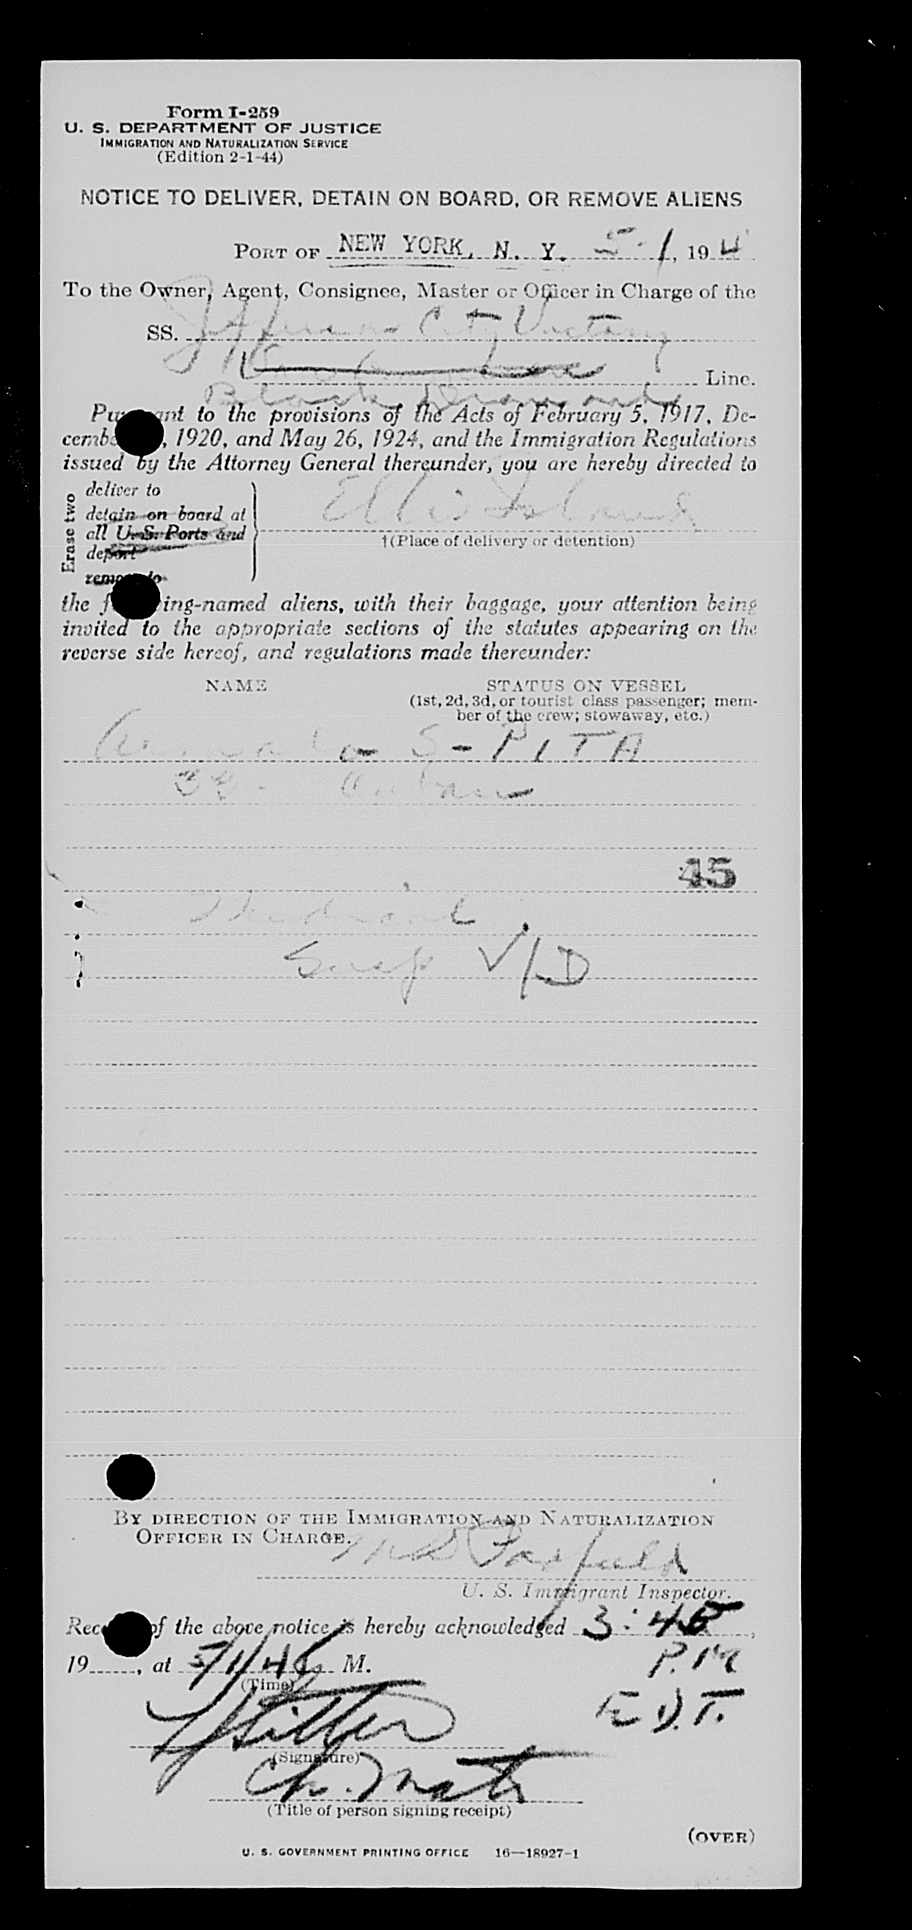 Form I-259
U. S. DEPARTMENT OF JUSTICE
IMMIGRATION AND NATURALIZATION SERVICE
(Edition 2-1-44)
NOTICE TO DELIVER, DETAIN ON BOARD, OR REMOVE ALIENS
PORT OF NEW YORK, N. Y. 5-1, 194
To the Owner, Agent, Consignee, Master or Officer in Charge of the
SS. Jefferson City Victory
Line.
Black Diamond
Pursuant to the provisions of the Acts of February 5, 1917, De-
cember , 1920, and May 26, 1924, and the Immigration Regulations
issued by the Attorney General thereunder, you are hereby directed to
Erase two
deliver to
detain on board at
all U. S. Ports and
deport
remove to
Ellis Island
†(Place of delivery or detention)
the following-named aliens, with their baggage, your attention being
invited to the appropriate sections of the statutes appearing on the
reverse side hereof, and regulations made thereunder:
NAME STATUS ON VESSEL
(1st, 2d, 3d, or tourist class passenger; mem-
ber of the crew; stowaway, etc.)
S-PITA
Cuban
45
Medical
Susp V/D
BY DIRECTION OF THE IMMIGRATION AND NATURALIZATION
OFFICER IN CHARGE.
U. S. Immigrant Inspector.
Receipt of the above notice is hereby acknowledged 3:45,
19 , at 5/1/46 M. P.M
(Time)
E.D.T.
(Signature)
Ch. Mate
(Title of person signing receipt)
(OVER)
U. S. GOVERNMENT PRINTING OFFICE 16—18927-1